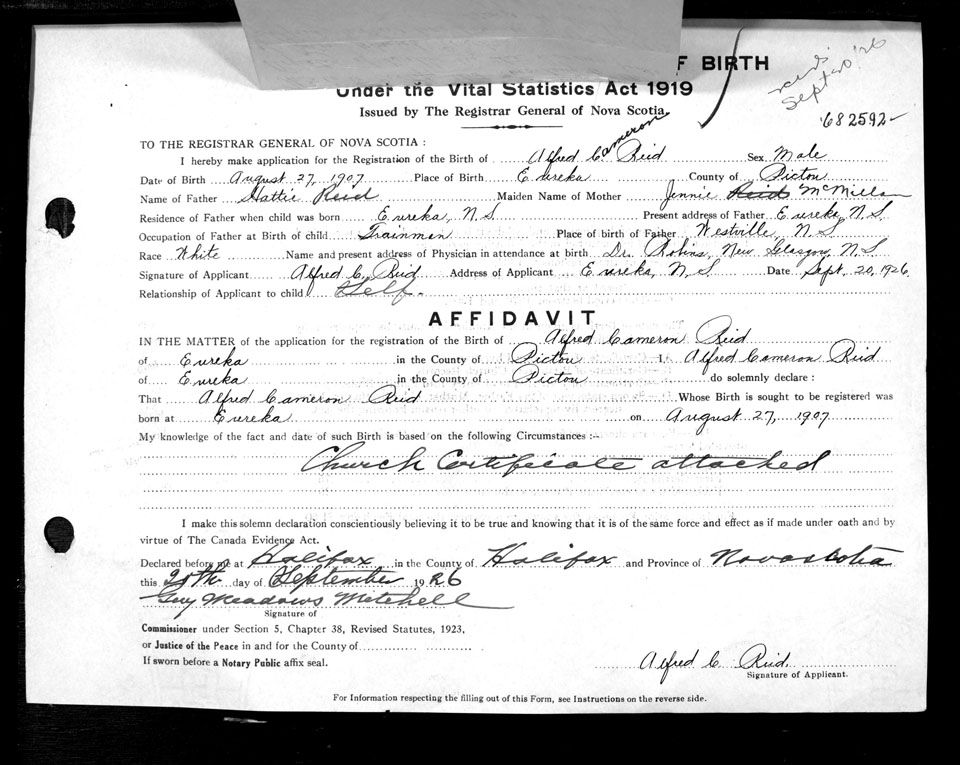 F BIRTH
Under the Vital Statistics Act 1919
Issued by The Registrar General of Nova Scotia.
rec'd Sept 20 '26
682592-
TO THE REGISTRAR GENERAL OF NOVA SCOTIA :
I hereby make application for the Registration of the Birth of Alfred Cameron Reid Sex Male
Date of Birth August 27, 1907 Place of Birth Eureka County of Pictou
Name of Father Hattie Reid Maiden Name of Mother Jennie Reid McMillan
Residence of Father when child was born Eureka, N.S. Present address of Father Eureka, N.S.
Occupation of Father at Birth of child Trainman Place of birth of Father Westville, N.S
Race White Name and present address of Physician in attendance at birth Dr. Robins, New Glasgow, N.S.
Signature of Applicant Alfred C. Reid Address of Applicant Eureka, N.S Date Sept. 20, 1926.
Relationship of Applicant to child Self.
AFFIDAVIT
IN THE MATTER of the application for the registration of the Birth of Alfred Cameron Reid
of Eureka in the County of Pictou I, Alfred Cameron Reid
of Eureka in the County of Pictou do solemnly declare :
That Alfred Cameron Reid Whose Birth is sought to be registered was
born at Eureka on August 27, 1907
My knowledge of the fact and date of such Birth is based on the following Circumstances :-
Church Certificate attached
I make this solemn declaration conscientiously believing it to be true and knowing that it is of the same force and effect as if made under oath and by
virtue of The Canada Evidence Act.
Declared before me at Halifax in the County of Halifax and Province of Nova Scotia
this 20th day of September 1926
Guy Meadows Mitchell
Signature of
Commissioner under Section 5, Chapter 38, Revised Statutes, 1923,
or Justice of the Peace in and for the County of
If sworn before a Notary Public affix seal.
Alfred C Reid.
Signature of Applicant.
For Information respecting the filling out of this Form, see Instructions on the reverse side.